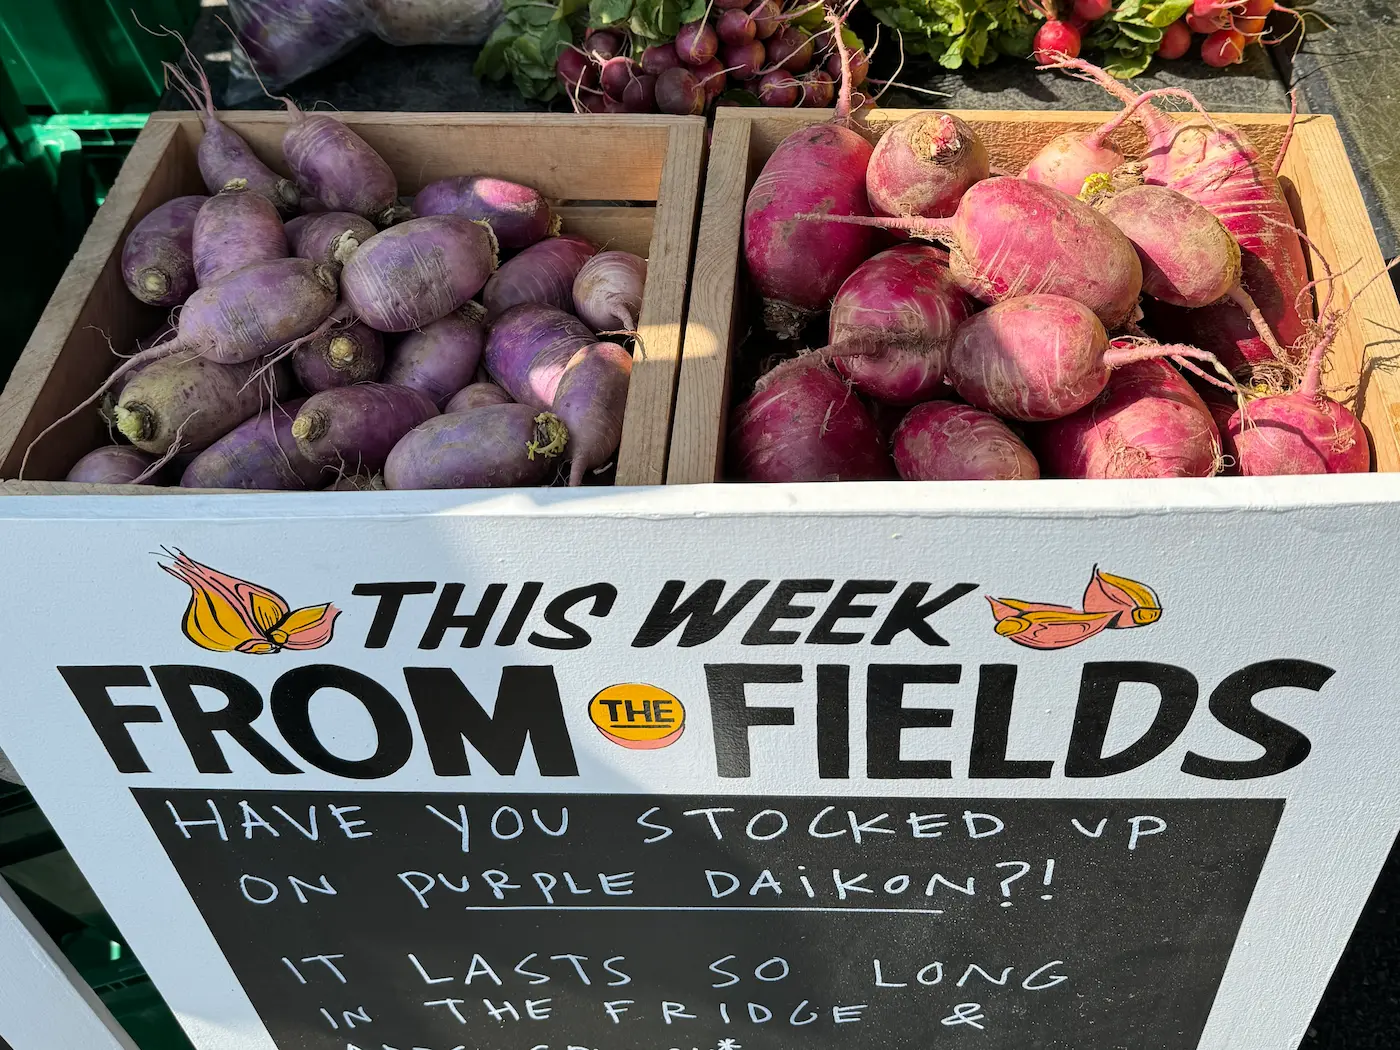 THIS WEEK
FROM THE FIELDS
HAVE YOU STOCKED UP
ON PURPLE DAiKON?!
IT LASTS SO LONG
IN THE FRIDGE &